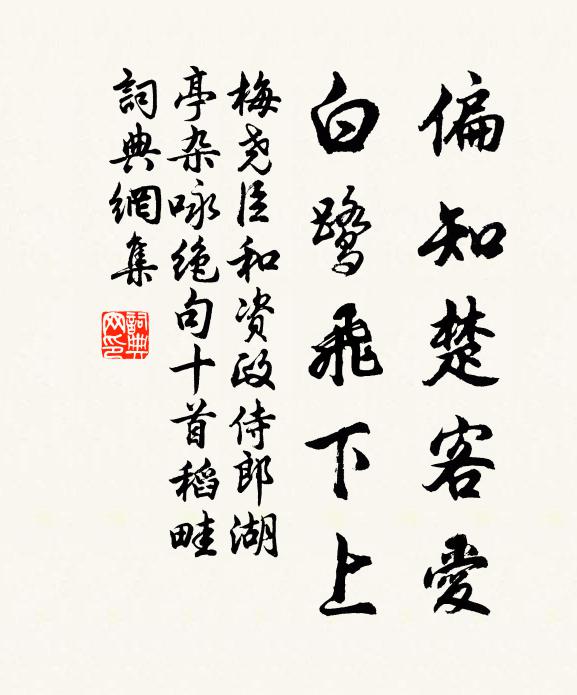 偏知楚客愛
白鹭飛下上
梅尧臣和资政侍郎湖
亭杂咏绝句十首稻畦
詞典網集
詞典
网